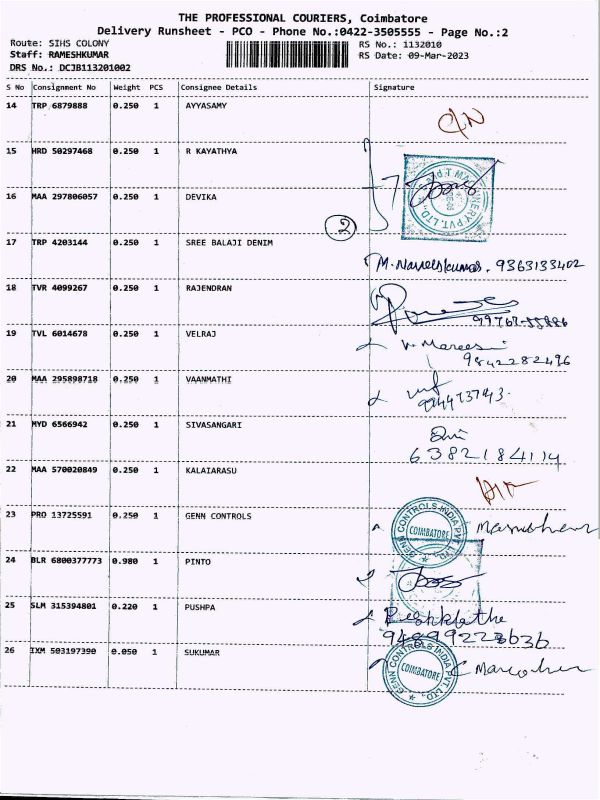 THE PROFESSIONAL COURIERS, Coimbatore
Delivery Runsheet - PCO - Phone No.:0422-3505555 - Page No.:2
Route: SIHS COLONY
Staff: RAMESHKUMAR
DRS No.: DCJB113201002
RS No.: 1132010
RS Date: 09-Mar-2023
S No Consignment No Weight PCS Consignee Details Signature
14 TRP 6879888 0.250 1 AYYASAMY
15 HRD 50297468 0.250 1 R KAYATHYA
16 MAA 297806057 0.250 1 DEVIKA
2
17 TRP 4203144 0.250 1 SREE BALAJI DENIM
9363133402
18 TVR 4099267 0.250 1 RAJENDRAN
19 TVL 6014678 0.250 1 VELRAJ
9842282496
20 MAA 295898718 0.250 1 VAANMATHI
21 MYD 6566942 0.250 1 SIVASANGARI
6382184114
22 MAA 570020849 0.250 1 KALAIARASU
23 PRO 13725591 0.250 1 GENN CONTROLS
GENN CONTROLS-INDIA PVT LTD. COIMBATORE
24 BLR 6800377773 0.980 1 PINTO
25 SLM 315394801 0.220 1 PUSHPA
26 IXM 503197390 0.050 1 SUKUMAR
GENN CONTROLS-INDIA PVT LTD. COIMBATORE